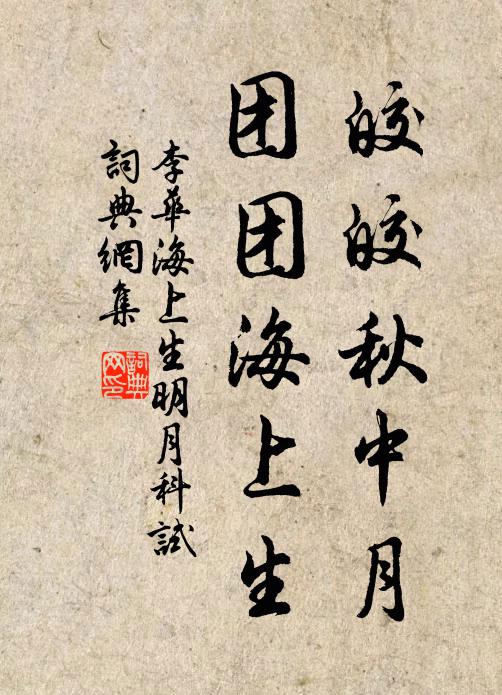 皎皎秋中月
团团海上生
李華海上生明月科試
詞典網集
詞典
网印